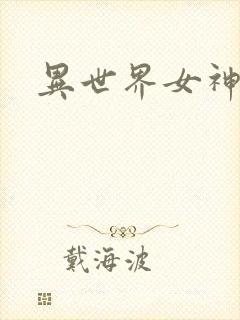 異世界女神
戴海波